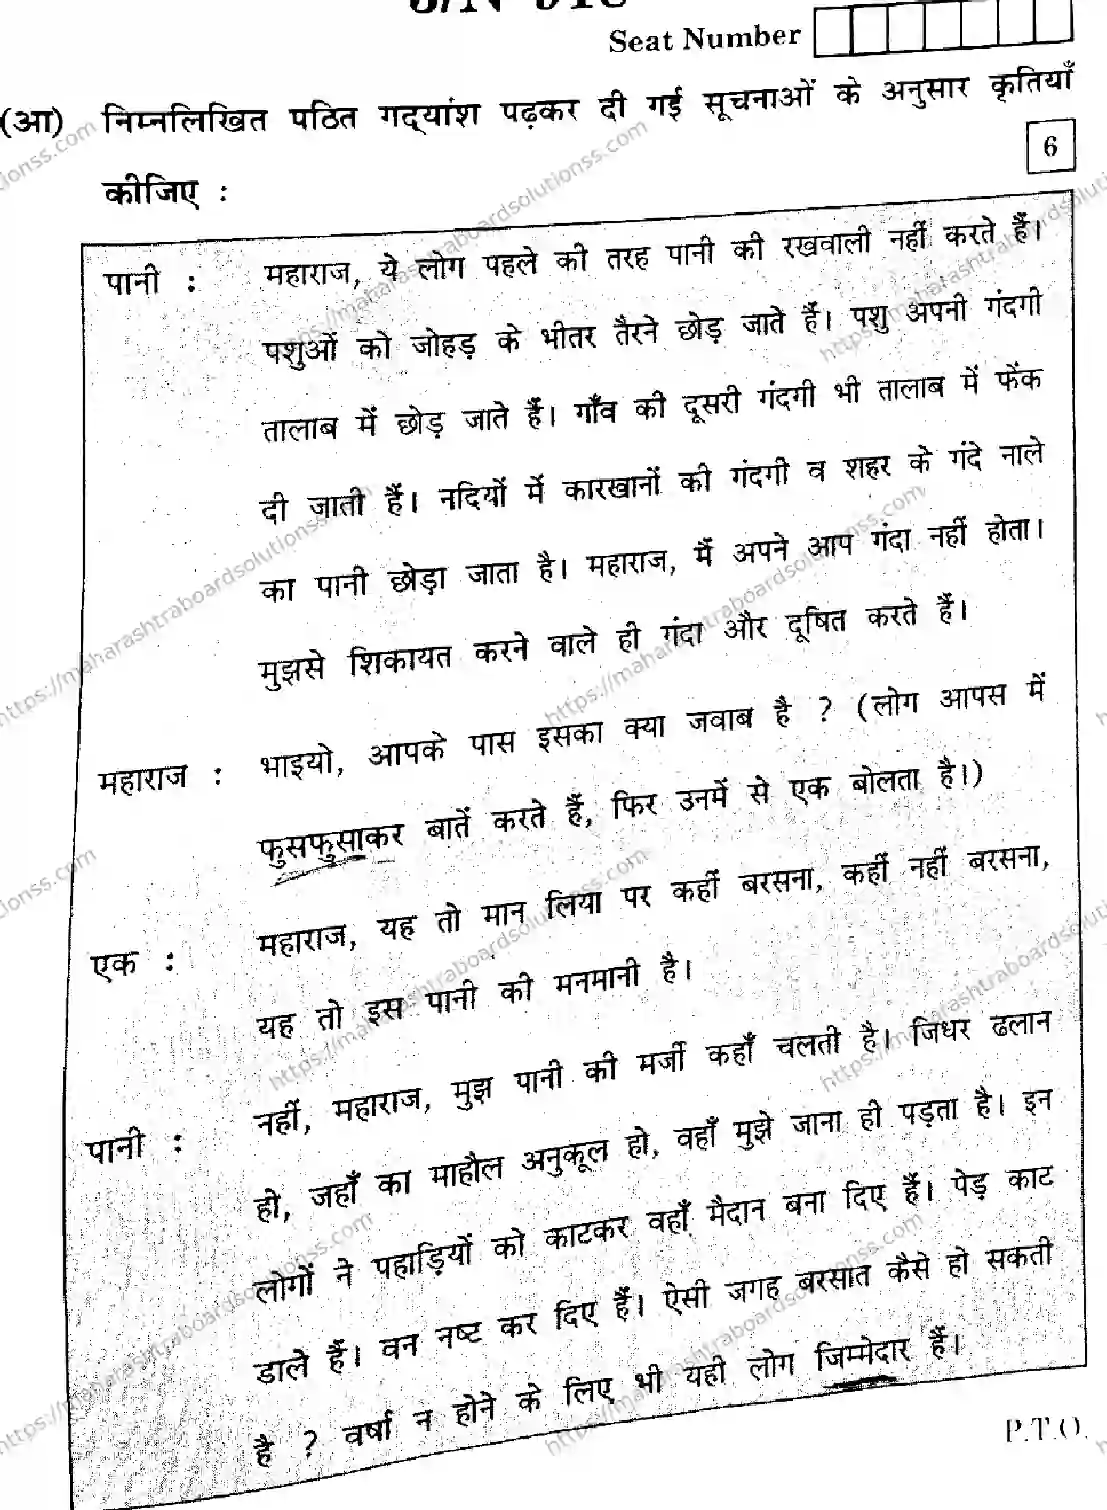 Seat Number
(आ) निम्नलिखित पठित गद्यांश पढ़कर दी गई सूचनाओं के अनुसार कृतियाँ
कीजिए :
6
पानी : महाराज, ये लोग पहले की तरह पानी की रखवाली नहीं करते हैं।
पशुओं को जोहड़ के भीतर तैरने छोड़ जाते हैं। पशु अपनी गंदगी
तालाब में छोड़ जाते हैं। गाँव की दूसरी गंदगी भी तालाब में फेंक
दी जाती हैं। नदियों में कारखानों की गंदगी व शहर के गंदे नाले
का पानी छोड़ा जाता है। महाराज, मैं अपने आप गंदा नहीं होता।
मुझसे शिकायत करने वाले ही गंदा और दूषित करते हैं।
महाराज : भाइयो, आपके पास इसका क्या जवाब है ? (लोग आपस में
फुसफुसाकर बातें करते हैं, फिर उनमें से एक बोलता है।)
एक : महाराज, यह तो मान लिया पर कहीं बरसना, कहीं नहीं बरसना,
यह तो इस पानी की मनमानी है।
पानी : नहीं, महाराज, मुझ पानी की मर्जी कहाँ चलती है। जिधर ढलान
हो, जहाँ का माहौल अनुकूल हो, वहाँ मुझे जाना ही पड़ता है। इन
लोगों ने पहाड़ियों को काटकर वहाँ मैदान बना दिए हैं। पेड़ काट
डाले हैं। वन नष्ट कर दिए हैं। ऐसी जगह बरसात कैसे हो सकती
है ? वर्षा न होने के लिए भी यही लोग जिम्मेदार हैं।
P.T.O.
https://maharashtraboardsolutionss.com